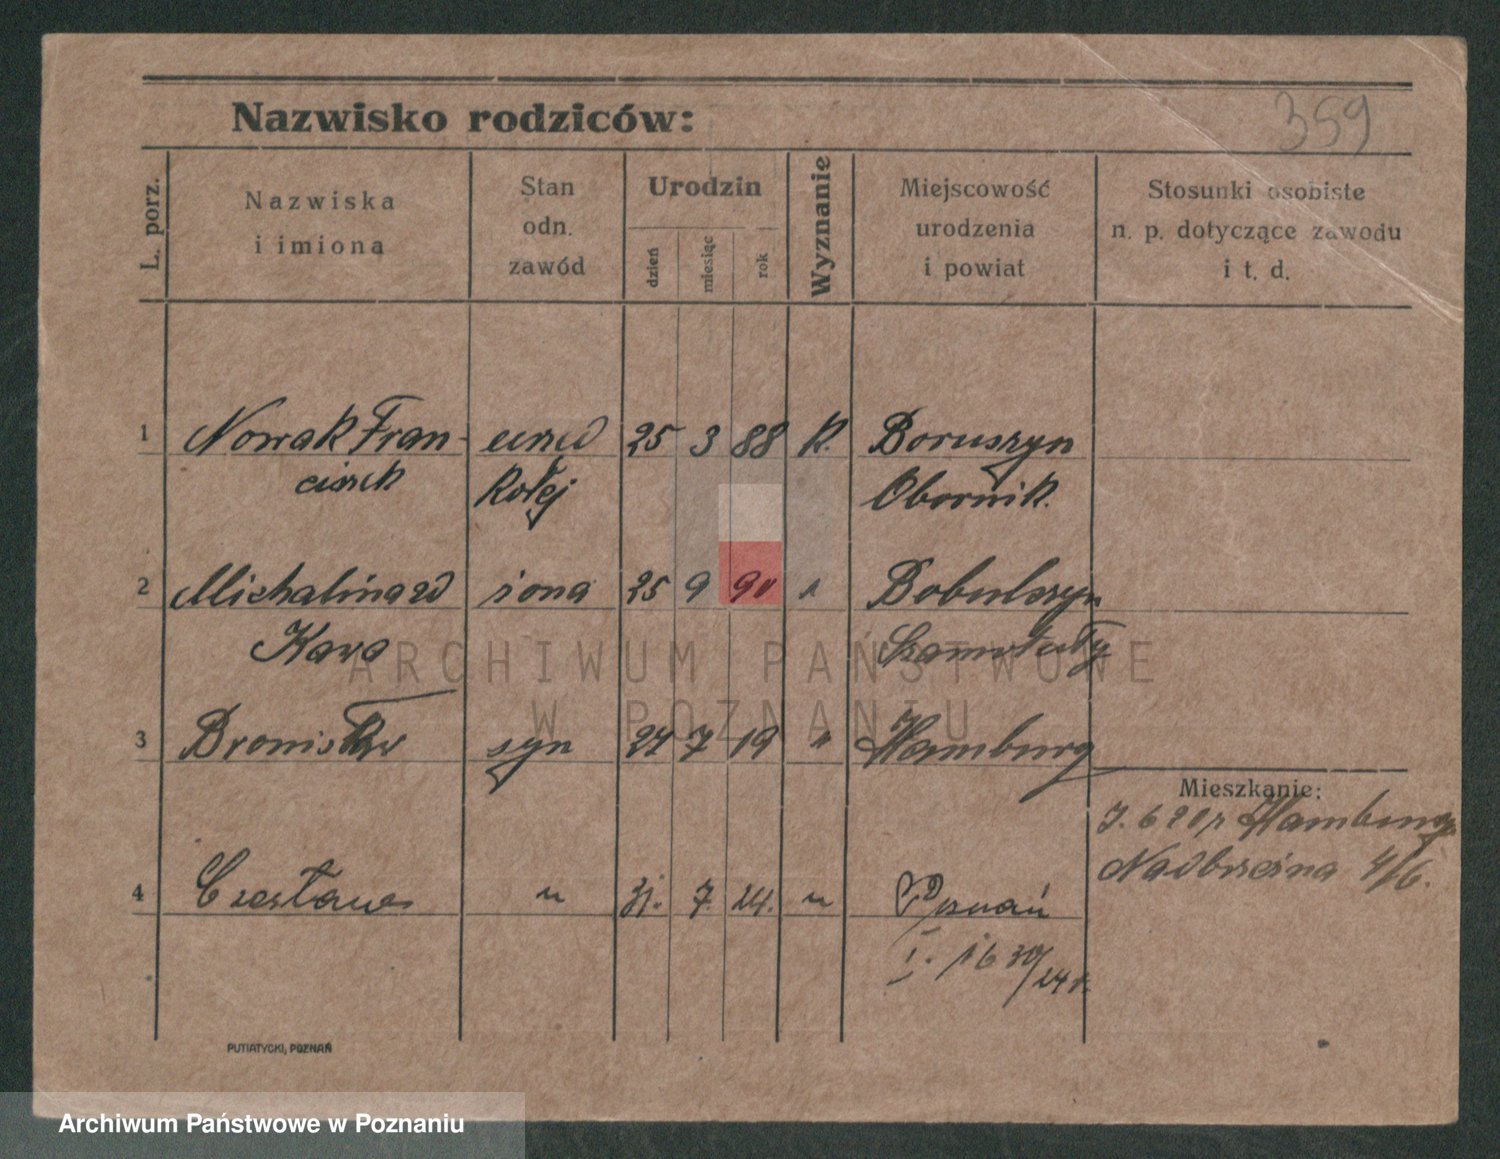 359
Nazwisko rodziców:
L. porz.
Nazwiska
i imiona
Stan
odn.
zawód
Urodzin
dzień
miesiąc
rok
Wyznanie
Miejscowość
urodzenia
i powiat
Stosunki osobiste
n. p. dotyczące zawodu
i t. d.
1 Nowak Fran- 25 3 88 k. Boruszyn
ciszek kolej Obornik.
2 Michalina zd żona 25 9 90 " Bobulczyn
Kawa Szamotuły
3 Bronisław syn 27 7 19 " Hamburg
Mieszkanie:
Hamburg
Nadbrzeżna 4/6.
4 Czesław " 31. 7. 24. " Poznań
I. 1630/24 r.
ARCHIWUM PAŃSTWOWE
W POZNANIU
PUTIATYCKI, POZNAŃ
Archiwum Państwowe w Poznaniu